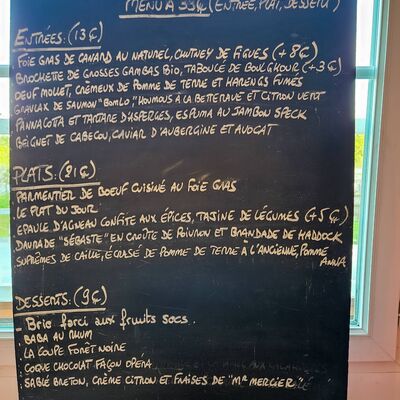 MENU A 33€ (ENTRÉE, PLAT, DESSERT)
ENTRÉES: (13€)
FOIE GRAS DE CANARD AU NATUREL, CHUTNEY DE FIGUES (+8€)
BROCHETTE DE GROSSES GAMBAS BIO, TABOULÉ DE BOULGHOUR (+3€)
OEUF MOLLET, CRÉMEUX DE POMME DE TERRE ET HARENGS FUMÉS
GRAVLAX DE SAUMON "BOMLO", HOUMOUS À LA BETTERAVE ET CITRON VERT
PANNACOTA ET TARTARE D'ASPERGES, ESPUMA AU JAMBON SPECK
BEIGNET DE CABECOU, CAVIAR D'AUBERGINE ET AVOCAT
PLATS: (21€)
PARMENTIER DE BOEUF CUISINÉ AU FOIE GRAS
LE PLAT DU JOUR
EPAULE D'AGNEAU CONFITE AUX ÉPICES, TAJINE DE LÉGUMES (+5€)
DAURADE "SÉBASTE" EN CROÛTE DE POIVRON ET BRANDADE DE HADDOCK
SUPRÊMES DE CAILLE, ÉCRASÉ DE POMME DE TERRE À L'ANCIENNE, POMME
ANNA
DESSERTS: (9€)
- Brie farci aux fruits secs.
BABA AU RHUM
LA COUPE FORÊT NOIRE
COQUE CHOCOLAT FAÇON OPÉRA
SABLÉ BRETON, CRÈME CITRON ET FRAISES DE "MR MERCIER"